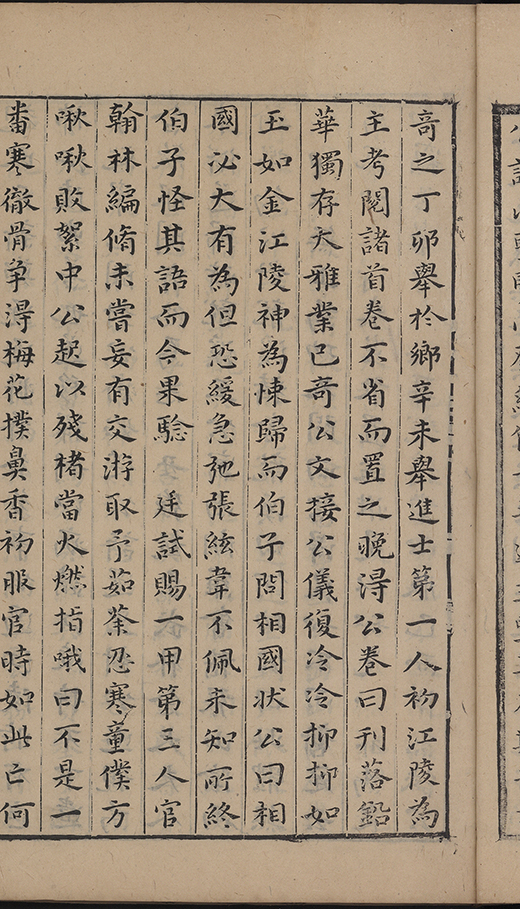 奇之丁卯舉於鄉辛未舉進士第一人初江陵為
主考閱諸首卷不省而置之晚得公卷曰刊落鉛
華獨存大雅業已奇公文接公儀復冷冷抑抑如
玉如金江陵神為悚歸而伯子問相國狀公曰相
國必大有為但恐緩急弛張絃韋不佩未知所終
伯子怪其語而今果驗 廷試賜一甲第三人官
翰林編脩未嘗妄有交游取予茹荼忍寒童僕方
啾啾敗絮中公起以殘楮當火燃指哦曰不是一
番寒徹骨争得梅花撲鼻香初服官時如此亡何